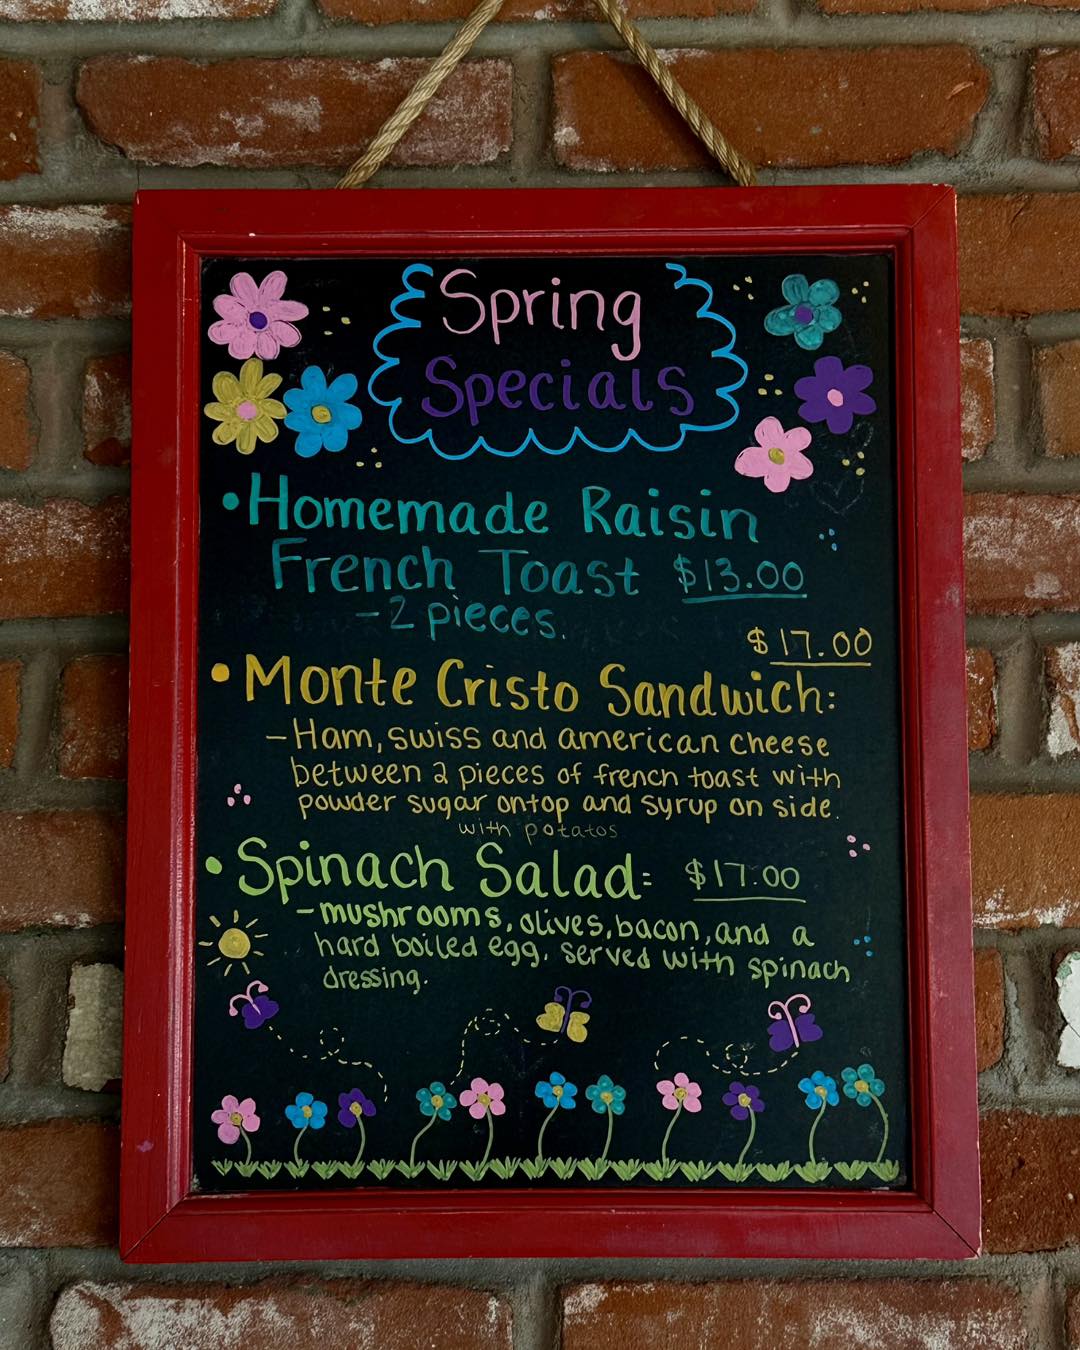 Spring
Specials
•Homemade Raisin
French Toast $13.00
-2 pieces.
$17.00
•Monte Cristo Sandwich:
-Ham, swiss and american cheese
between 2 pieces of french toast with
powder sugar ontop and syrup on side.
with potatos
•Spinach Salad: $17.00
-mushrooms, olives, bacon, and a
hard boiled egg. served with spinach
dressing.